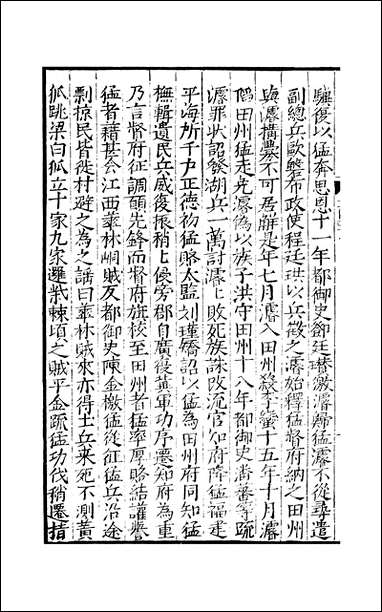 驥復以猛奔思恩十一年都御史鄧廷瓚檄濬歸猛濬不從尋遣
副總兵歐磐布政使程廷珙以兵徵之濬始釋猛督府納之田州
與濬構釁不可居解是年七月濬入田州殺李蠻十五年十月濬
陷田州猛走免濬偽以族子洪守田州十八年都御史潘蕃等疏
濬罪狀詔發湖兵一萬討濬上敗死族誅改流官知府降猛福建
平海所千戶正德初猛賂太監劉瑾矯詔以猛為田州府同知猛
撫輯遺民兵威復振稍上侵旁郡自廣後冀軍功序遷知府為重
乃言督府征調願先鋒而督府旗校至田州者猛率厚賂結讙譽
猛者藉甚會江西華林峒賊反都御史陳金檄猛從征猛兵沿途
剽掠民皆徙村避之為之謠曰華林賊來亦得士兵來死不測黃
狐跳梁白狐立十家九家邏柴棘頃之賊平金疏猛功伐稍遷指